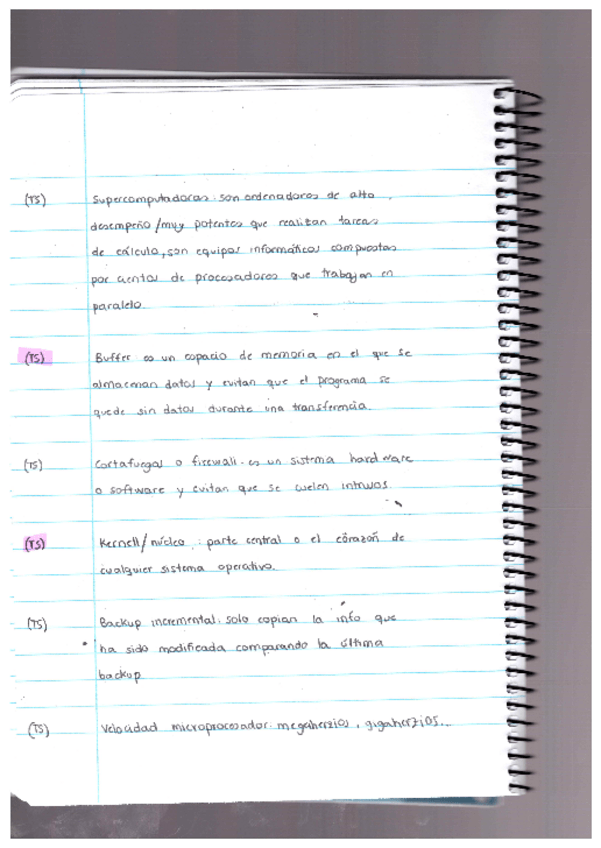 (TS) Supercomputadoras: son ordenadores de alto
desempeño/muy potentes que realizan tareas
de cálculo, son equipos informáticos compuestos
por cientos de procesadores que trabajan en
paralelo.
(TS) Buffer es un espacio de memoria en el que se
almacenan datos y evitan que el programa se
quede sin datos durante una transferencia.
(TS) Cortafuegos o firewall. es un sistema hardware
o software y evitan que se cuelen intrusos.
(TS) Kernell/núcleo: parte central o el córazón de
cualquier sistema operativo.
(TS) Backup incremental: solo copian la info que
ha sido modificada comparando la última
backup
(TS) Velocidad microprocesador: megaherzios, gigaherzios...